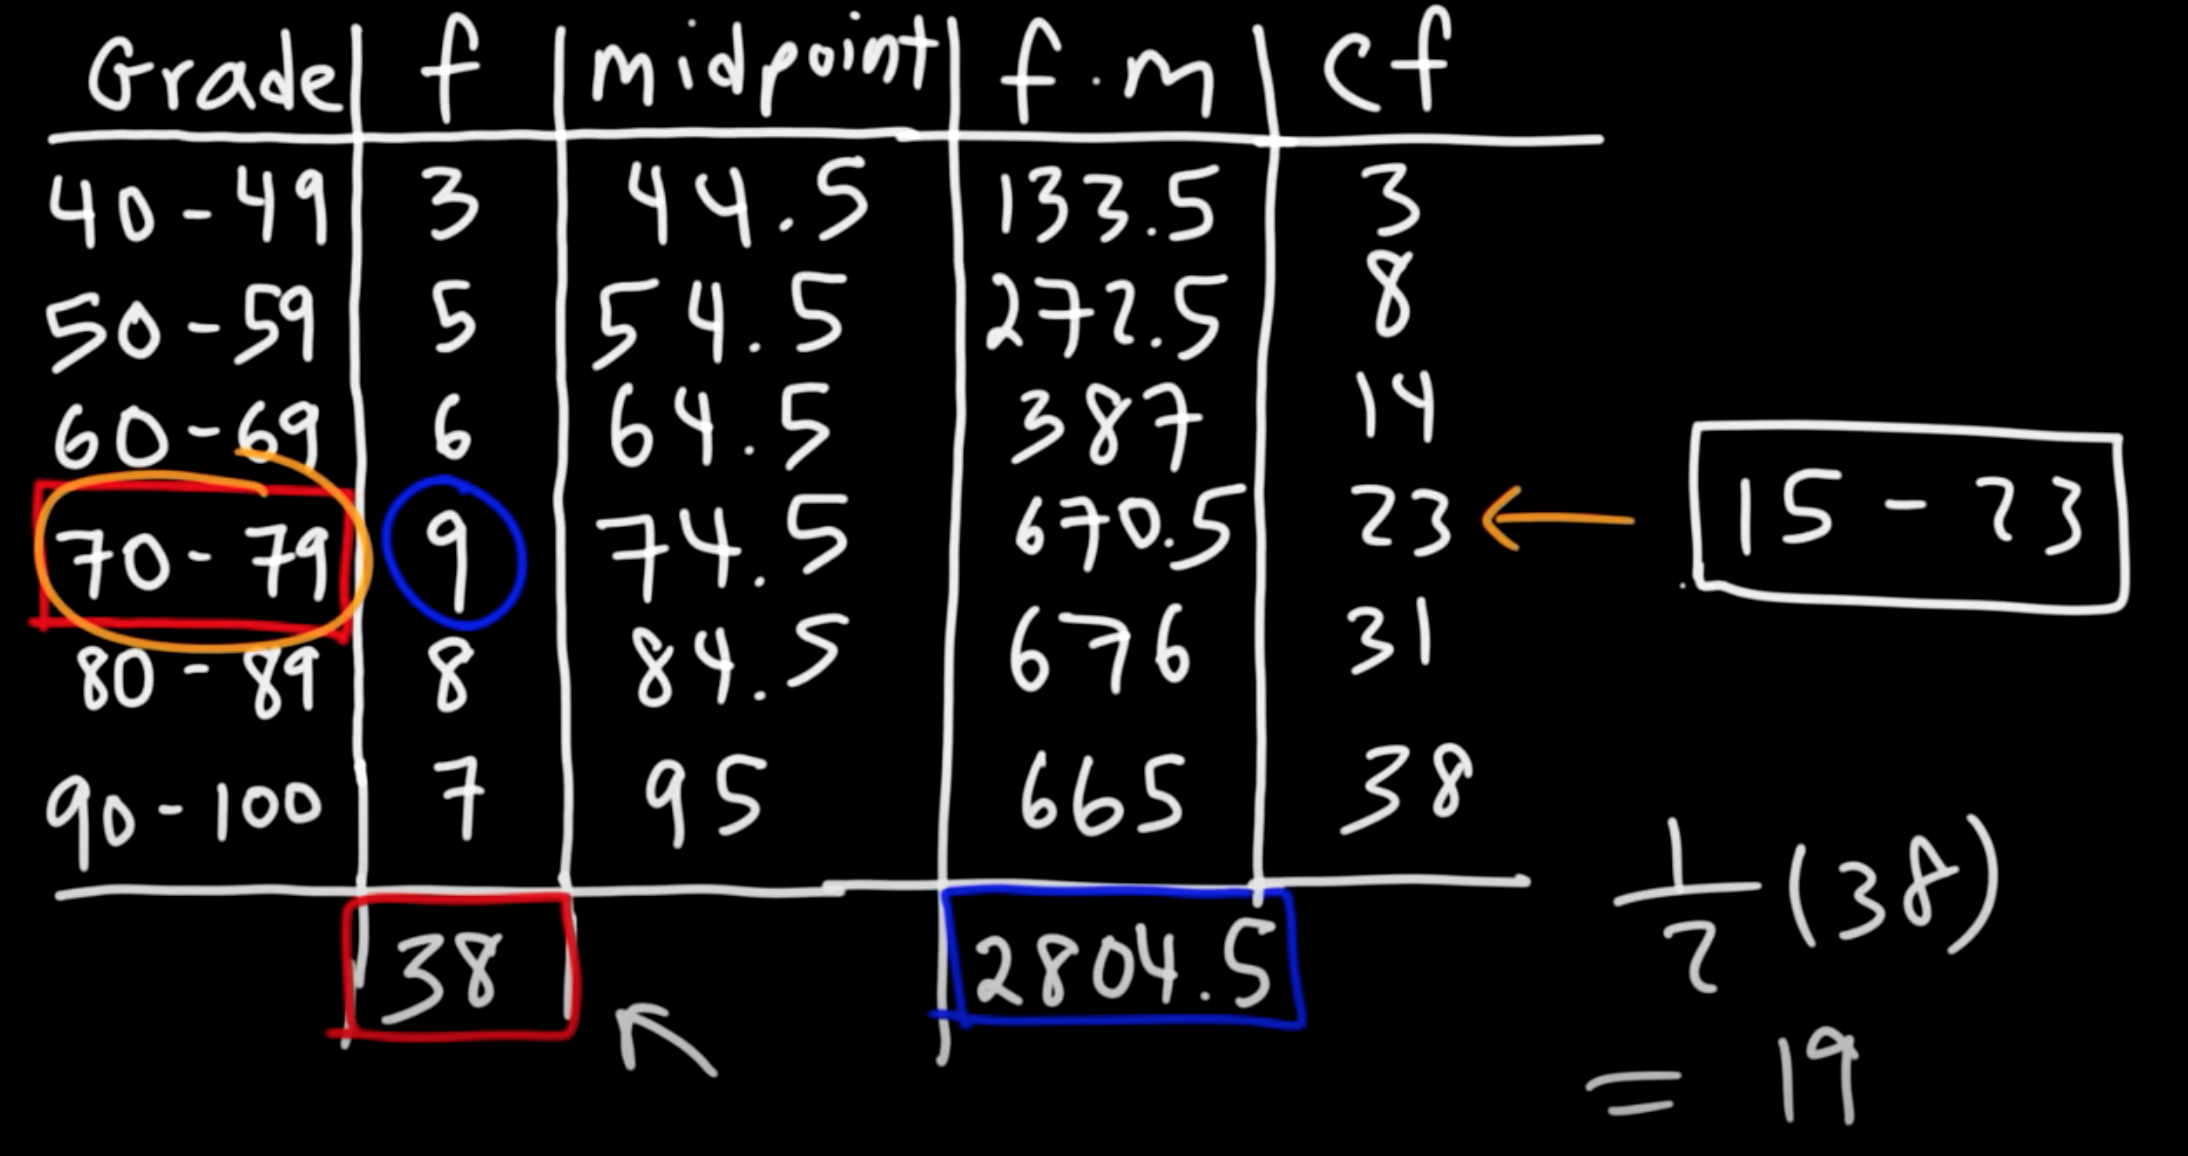 Grade f midpoint f·m cf
40-49 3 44.5 133.5 3
50-59 5 54.5 272.5 8
60-69 6 64.5 387 14
70-79 9 74.5 670.5 23 ← 15-23
80-89 8 84.5 676 31
90-100 7 95 665 38
38 2804.5
1/2 (38)
= 19